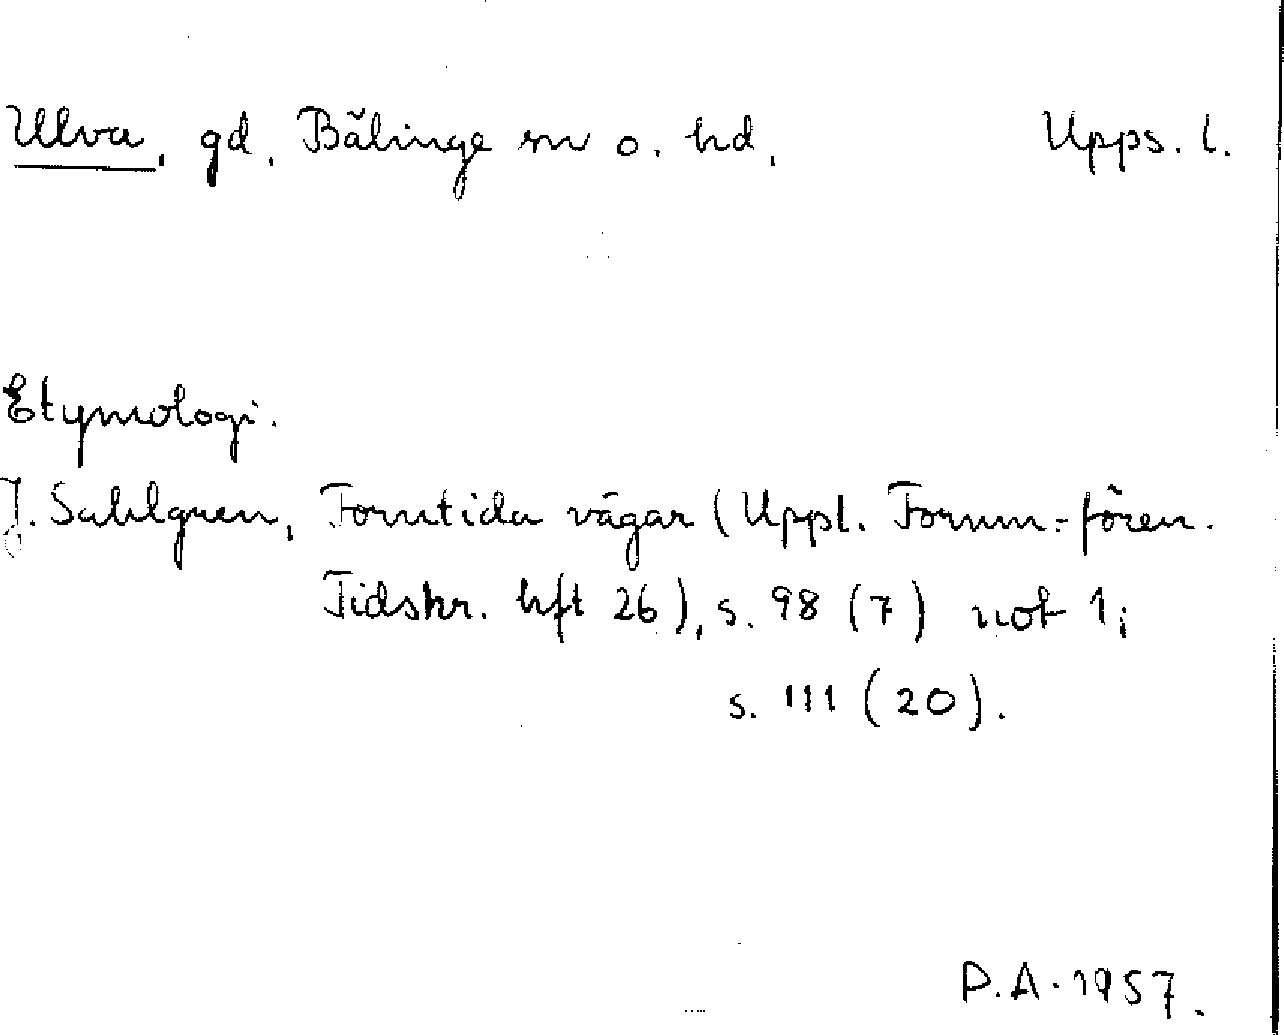 Ulva, gd, Bälinge sn o. hd,
Upps. l.
Etymologi.
J. Sahlgren, Forntida vägar (Uppl. Fornm.-fören.
Tidskr. hft 26), s. 98 (7) not 1;
s. 111 (20).
P.A. 1957.